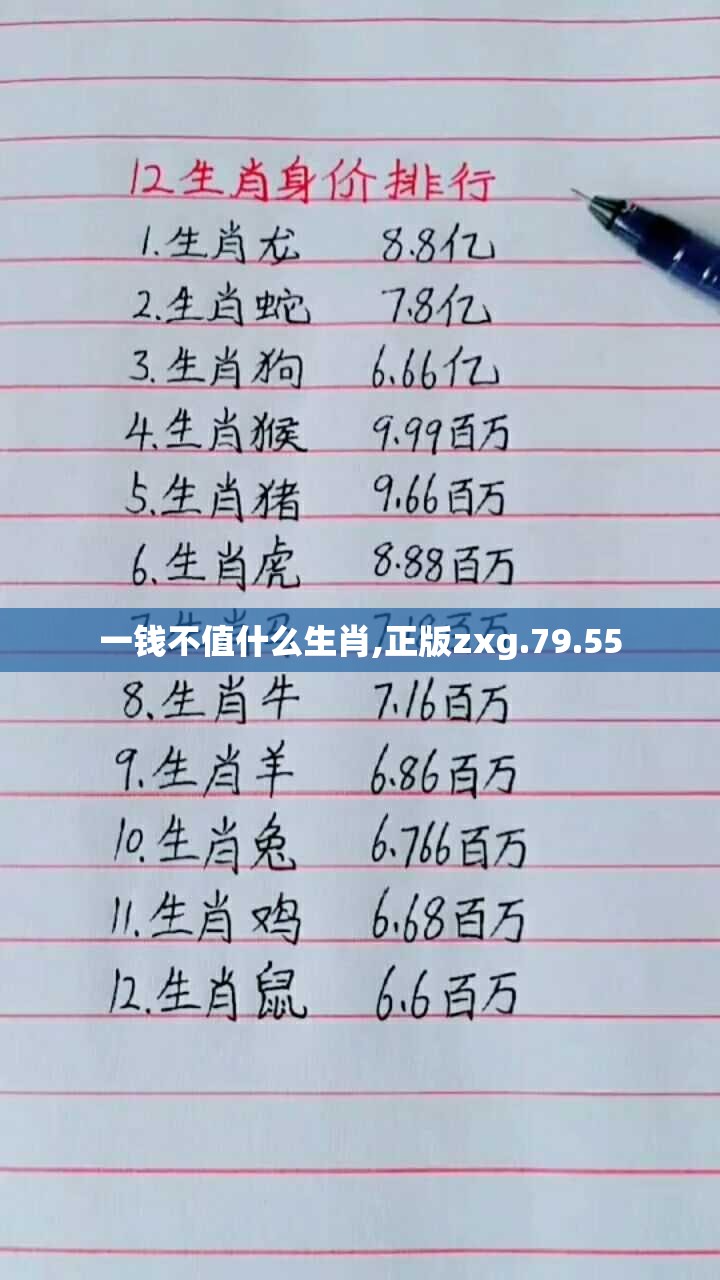 12生肖身价排行
1.生肖龙 8.8亿
2.生肖蛇 7.8亿
3.生肖狗 6.66亿
4.生肖猴 9.99百万
5.生肖猪 9.66百万
6.生肖虎 8.88百万
一钱不值什么生肖,正版zxg.79.55
8.生肖牛 7.16百万
9.生肖羊 6.86百万
10.生肖兔 6.766百万
11.生肖鸡 6.68百万
12.生肖鼠 6.6百万